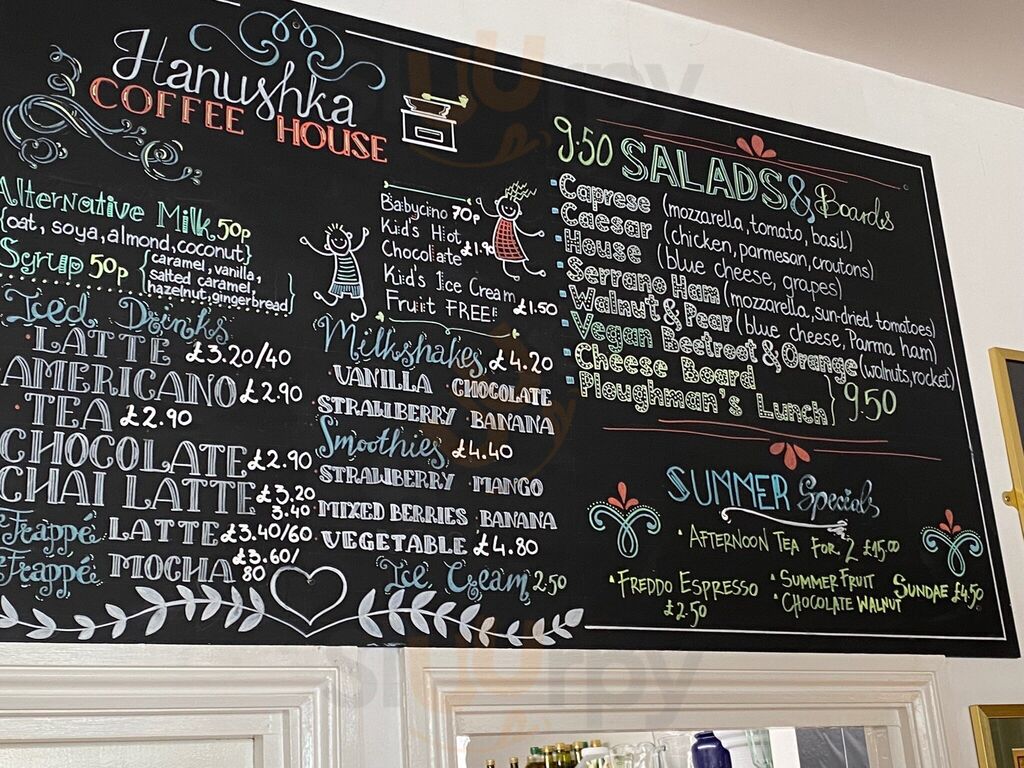 Hanushka
COFFEE HOUSE
Alternative Milk 50p
{oat, soya, almond, coconut}
Syrup 50p {caramel, vanilla,
salted caramel,
hazelnut, gingerbread}
Iced Drinks
LATTE £3.20/40
AMERICANO £2.90
TEA £2.90
CHOCOLATE £2.90
CHAI LATTE £3.20
3.40
Frappé LATTE £3.40/60
Frappé MOCHA £3.60/
80
Babycino 70p
Kid's Hot
Chocolate £1.90
Kid's Ice Cream
Fruit FREE! £1.50
Milkshakes £4.20
VANILLA · CHOCOLATE
STRAWBERRY · BANANA
Smoothies £4.40
STRAWBERRY · MANGO
MIXED BERRIES · BANANA
VEGETABLE £4.80
Ice Cream 2.50
9.50 SALADS & Boards
Caprese (mozzarella, tomato, basil)
Caesar (chicken, parmesan, croutons)
House (blue cheese, grapes)
Serrano Ham (mozzarella, sun-dried tomatoes)
Walnut & Pear (blue cheese, Parma ham)
Vegan Beetroot & Orange (walnuts, rocket)
Cheese Board
Ploughman's Lunch} 9.50
SUMMER Specials
AFTERNOON TEA FOR 2 £15.00
FREDDO ESPRESSO
£2.50
SUMMER FRUIT
CHOCOLATE WALNUT SUNDAE £4.50